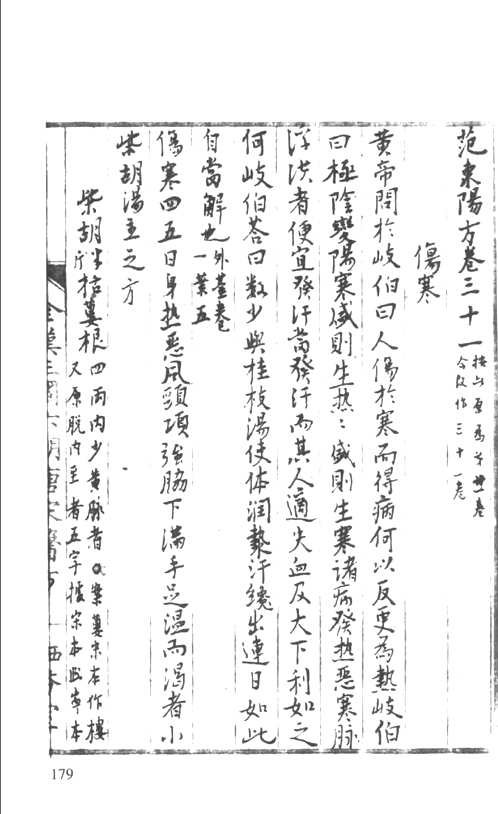 范東陽方卷三十一按此原爲第卅一卷
今改作三十一卷
傷寒
黃帝問於岐伯曰人傷於寒而得病何以反更爲熱岐伯
曰極陰變陽寒盛則生熱：盛則生寒諸病發熱惡寒脉
浮洪者便宜發汗當發汗而其人適失血及大下利如之
何岐伯荅曰數少與桂枝湯使体潤漐汗纔出連日如此
自當解也外臺卷
一葉五
傷寒四五日身熱惡風頸項強脇下滿手足温而渴者小
柴胡湯主之方
柴胡半斤栝蔞根四兩內少黃脉者 案蔞宋本作樓
又原脫內至者五字據宋本 本
179